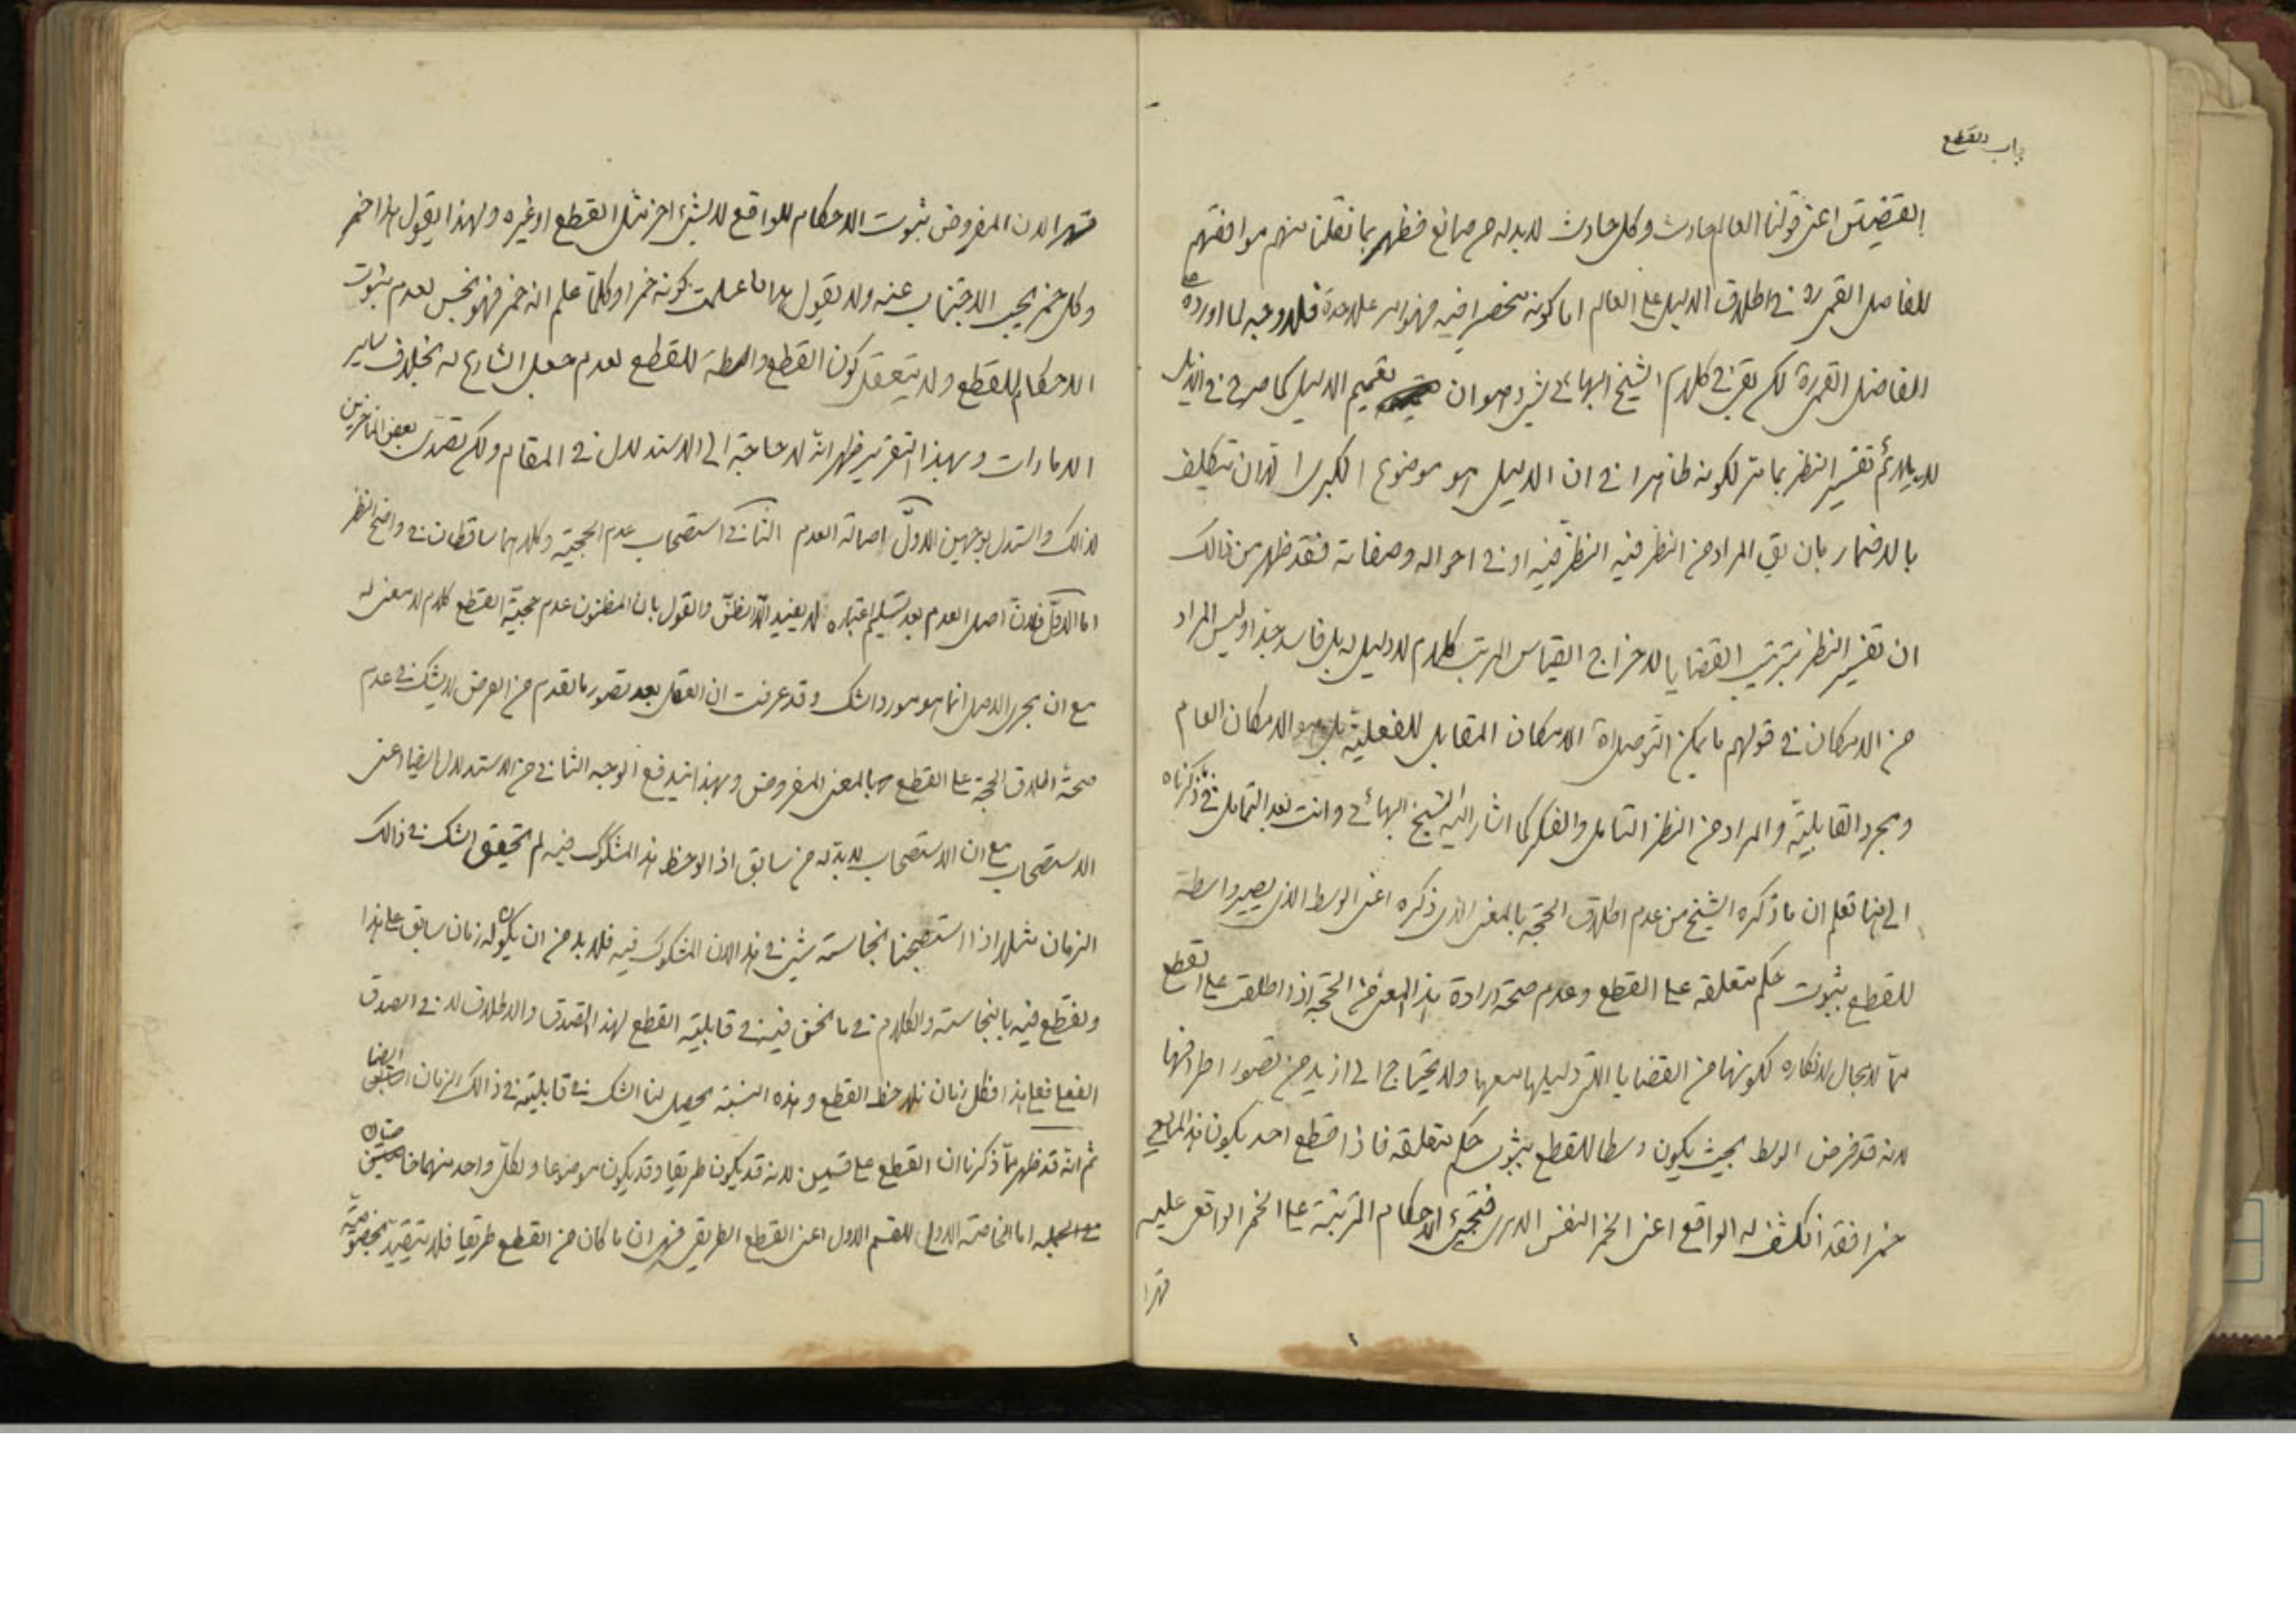 باب القطع
القضيتين اعنى قولنا العالم حادث وكل حادث لا بد له من صانع فظهر بما نقلنا منهم موافقتهم
للفاضل القمى ره فى اطلاق الدليل على العالم اما كونه منحصرا فيه فهو امر على حدة فلا وجه لما اورده على
الفاضل القمى ره لكن بقى فى كلام الشيخ البهائى شىء وهو ان تعميم الدليل كما صرح فى الذيل
لا يلائم تفسير النظر بما مر لكونه ظاهرا فى ان الدليل هو موضوع الكبرى الا ان يتكلف
بالاضمار بان يق المراد من النظر فيه النظر فيه او فى احواله وصفاته فقد ظهر من ذالك
ان تفسير النظر بترتيب القضايا لاخراج القياس المرتب كلام لا دليل له بل فاسد جدا وليس المراد
من الامكان فى قولهم ما يمكن التوصل اه الامكان المقابل للفعلية بل هو الامكان العام
ومجرد القابلية والمراد من النظر التامل والفكر كما اشار اليه الشيخ البهائى وانت بعد التامل فى ما ذكرناه
الى هنا تعلم ان ما ذكره الشيخ من عدم اطلاق الحجة بالمعنى الذى ذكره اعنى الوسط الذى يصير واسطة
للقطع بثبوت حكم متعلقه على القطع وعدم صحة ارادة هذا المعنى من الحجة اذا اطلقت على القطع
مما لا مجال لانكاره لكونها من القضايا التى دليلها معها ولا يحتاج الى ازيد من تصور اطرافها
لانه قد فرض الوسط بحيث يكون وسطا للقطع بثبوت حكم متعلقه فاذا قطع احد بكون هذا المايع
خمرا فقد انكشف له الواقع اعنى الخمر النفس الامرى فتجىء الاحكام المترتبة على الخمر الواقعى عليه
قهرا
قهرا لان المفروض ثبوت الاحكام للواقع لا لشىء اخر مثل القطع او غيره ولهذا يقول هذا خمر
وكل خمر يجب الاجتناب عنه ولا يقول هذا ما علمت كونه خمرا وكلما علم انه خمر فهو نجس لعدم ثبوت
الاحكام للقطع ولا يتعقل كون القطع واسطة للقطع لعدم جعل الشارع له بخلاف ساير
الامارات وبهذا التقرير ظهر انه لا حاجة الى الاستدلال فى المقام ولكن تصدى بعض المتاخرين
لذالك واستدل بوجهين الاول اصالة العدم الثانى استصحاب عدم الحجية وكلاهما ساقطان فى واضح النظر
اما الاول فلان اصل العدم بعد تسليم اعتباره لا يفيد الا الظن والقول بان المظنون عدم حجية القطع كلام لا معنى له
مع ان مجرى الاصل انما هو مورد الشك وقد عرفت ان العقل بعد تصور ما تقدم من الفرض لا يشك فى عدم
صحة اطلاق الحجة على القطع بالمعنى المفروض وبهذا يندفع الوجه الثانى من الاستدلال ايضا اعنى
الاستصحاب مع ان الاستصحاب لا بد له من سابق اذا لوحظ هذا المشكوك فيه لم يتحقق الشك فى ذالك
الزمان مثلا اذا استصحبنا نجاسة شىء فى هذا الان المشكوك فيه فلا بد من ان يكون له زمان سابق على هذا
ونقطع فيه بالنجاسة والكلام فى ما نحن فيه فى قابلية القطع لهذا الصدق والاطلاق لا فى الصدق
الفعلى فعلى هذا فكل زمان نلاحظ القطع وهذه النسبة يحصل لنا الشك فى قابليته فى ذالك الزمان ايضا
ثم انه قد ظهر مما ذكرنا ان القطع على قسمين لانه قد يكون طريقا وقد يكون موضوعا ولكل واحد منهما خاصيتان
اما الخاصة الاولى للقسم الاول اعنى القطع الطريقى فهى ان ما كان من القطع طريقا فلا يتقيد بخصوصية